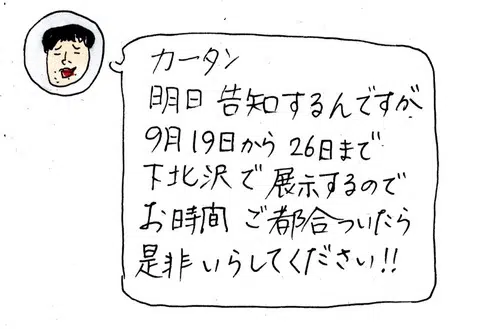 カータン
明日告知するんですが
9月19日から26日まで
下北沢で展示するので
お時間ご都合ついたら
是非いらしてください!!